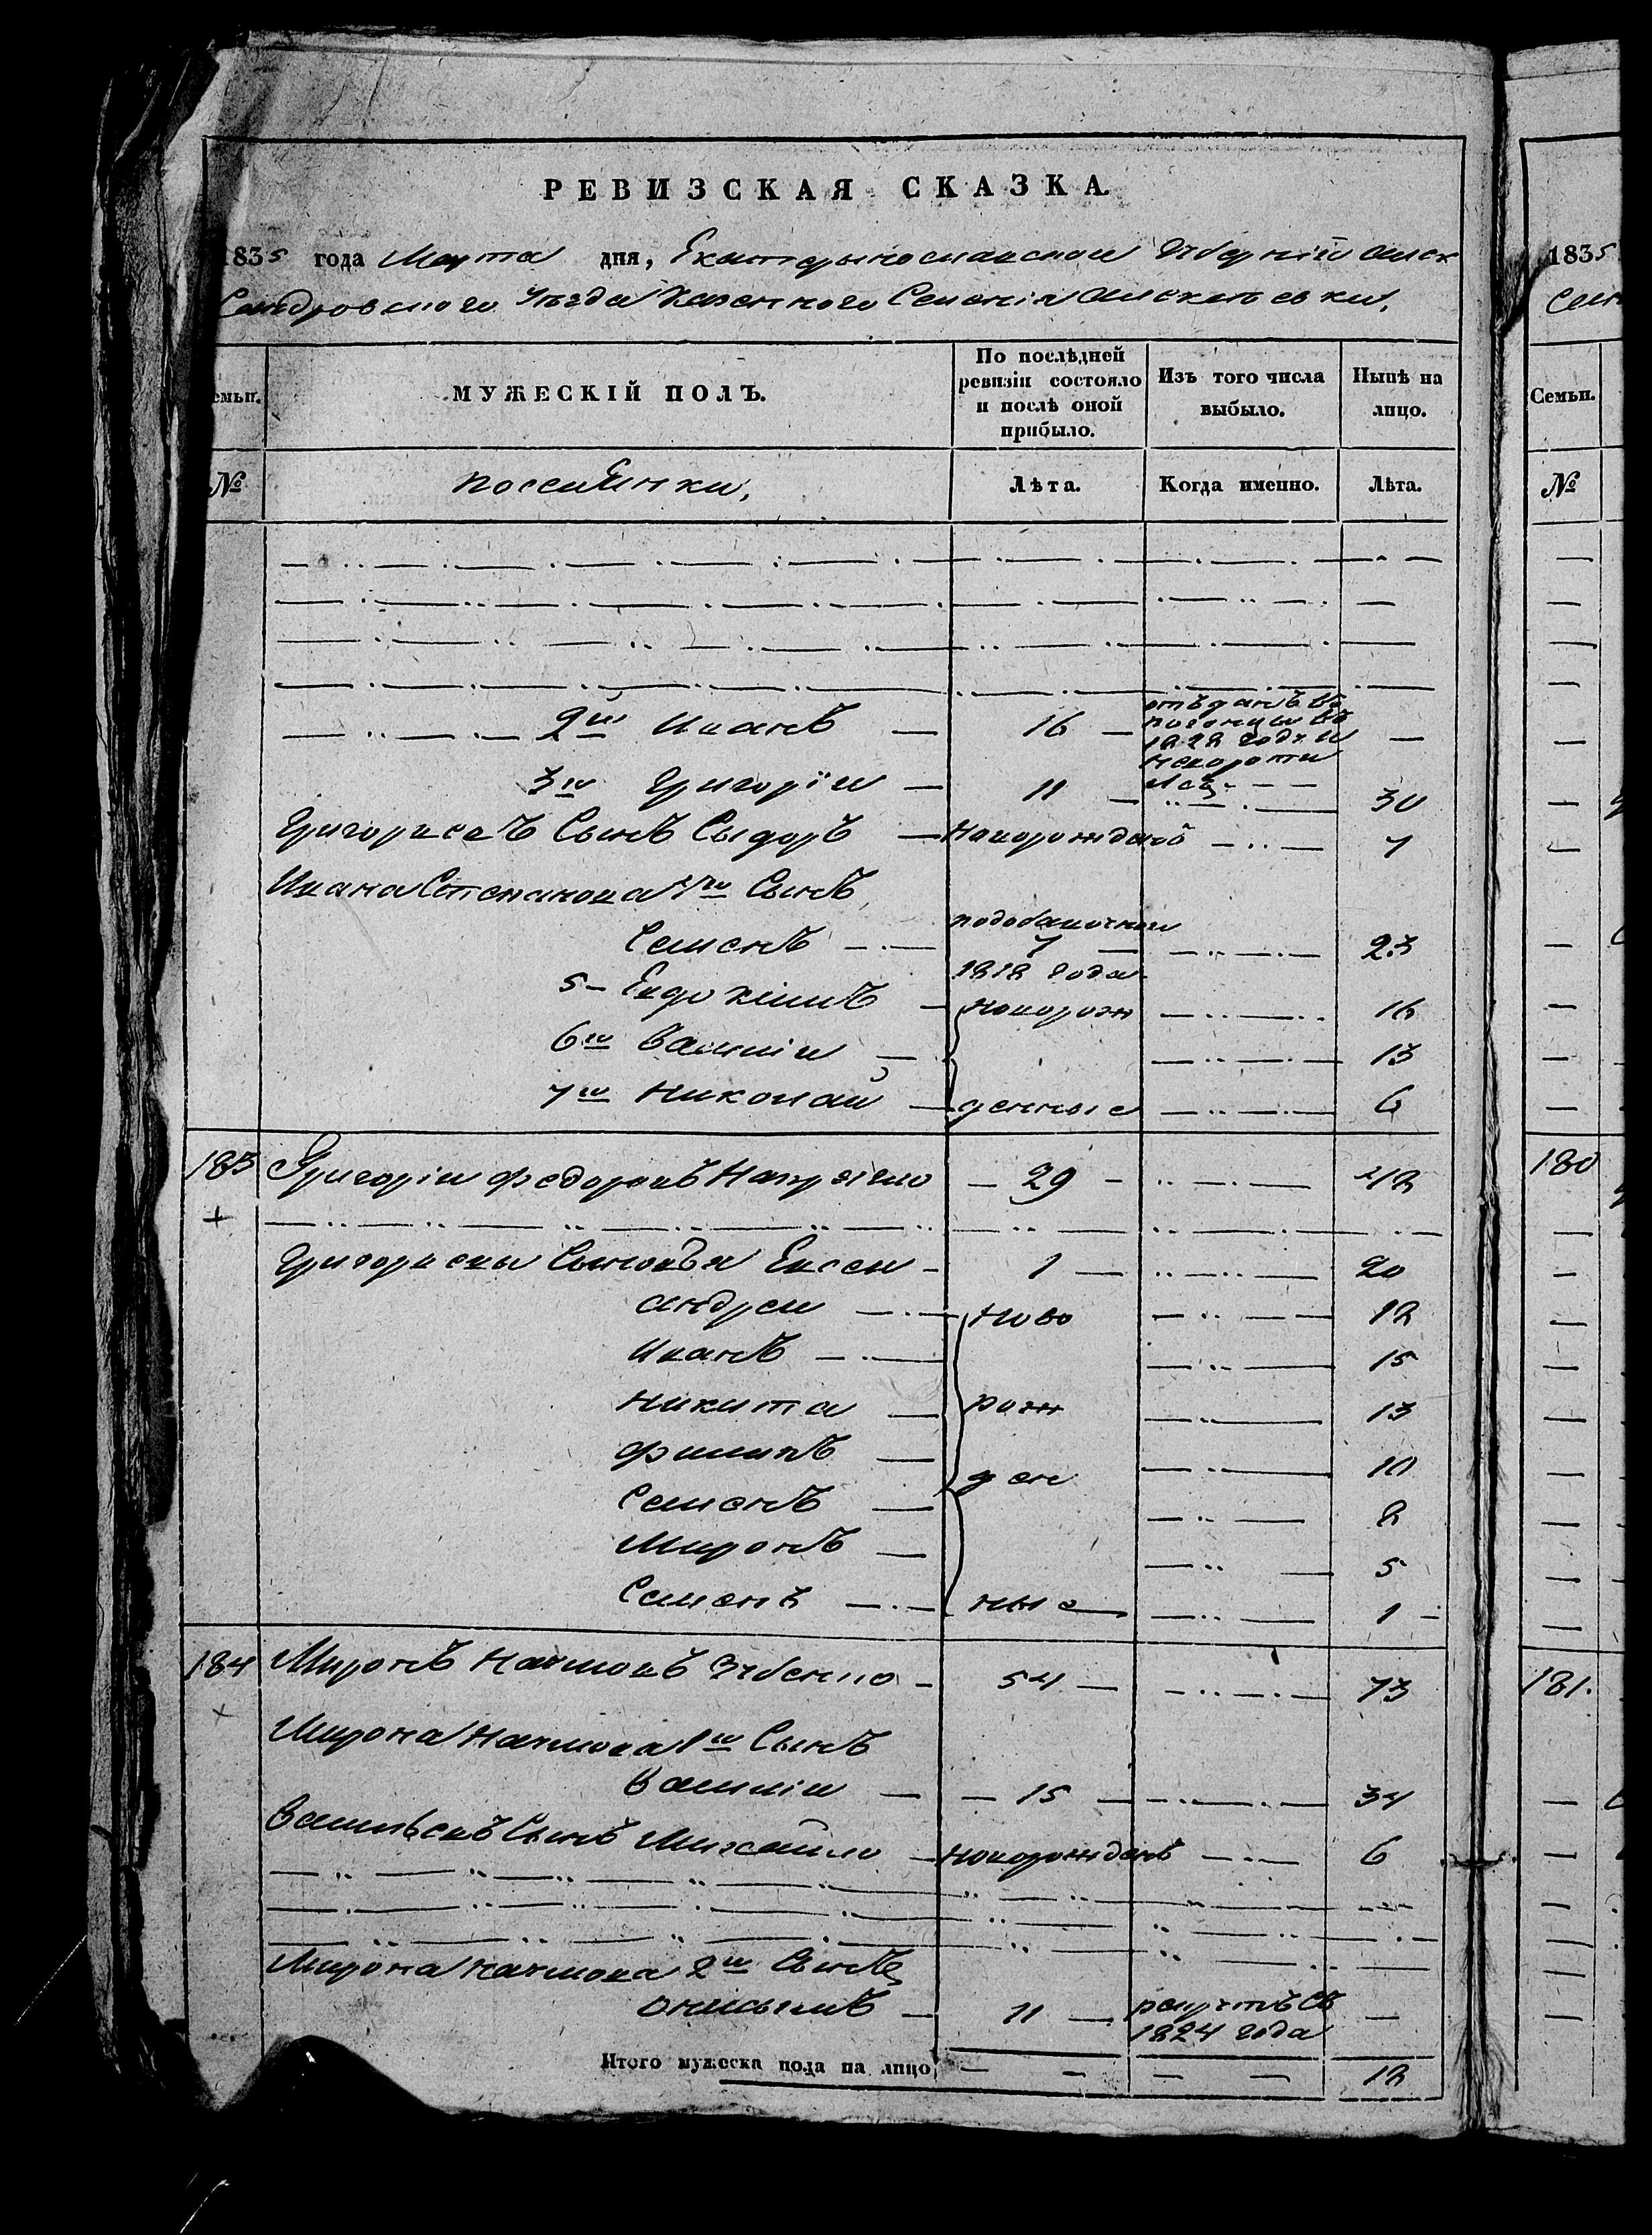 РЕВИЗСКАЯ СКАЗКА.
1835 года Марта дня, Екатеринославской Губерніи Алек
сандровского Уезда Казенного Селенія Алексеевки,
Семьи. МУЖЕСКІЙ ПОЛЪ. По послѣдней ревизіи состояло и послѣ оной прибыло. Изъ того числа выбыло. Нынѣ на лицо.
№ поселянки, Лѣта. Когда именно. Лѣта.
2й Иванъ — 16 — отъданъ въ погонцы въ 1828 году и —
3й Григорій — 11 — 30
Григориевъ Сынъ Сыдоръ — Новорожденой 7
Ивана Степанова 4й Сынъ
Семенъ — 7 — 23
1818 года
5 — Евдокимъ — новорож 16
6й Василій — 13
7й Николай — денные 6
183 Григорій Федоровъ — 29 — 48
Григориевы Сыновья Евсей — 1 — 20
Андрей — ново 18
Иванъ — 15
Никита — рож 13
Филипъ — 10
Семенъ — ден 8
Миронъ — 5
Семенъ — ные — 1
184 Миронъ Наумовъ Зубенко — 54 — 73
Мирона Наумова 1й Сынъ
Василій — 15 — 34
Васильевъ Сынъ Михайло — новорожденъ 6
Мирона Наумова 2й Сынъ
Онисымъ — 11 — рекрутъ съ 1824 года —
Итого мужеска пола на лицо 18
1835
Семьи.
№
180
181.